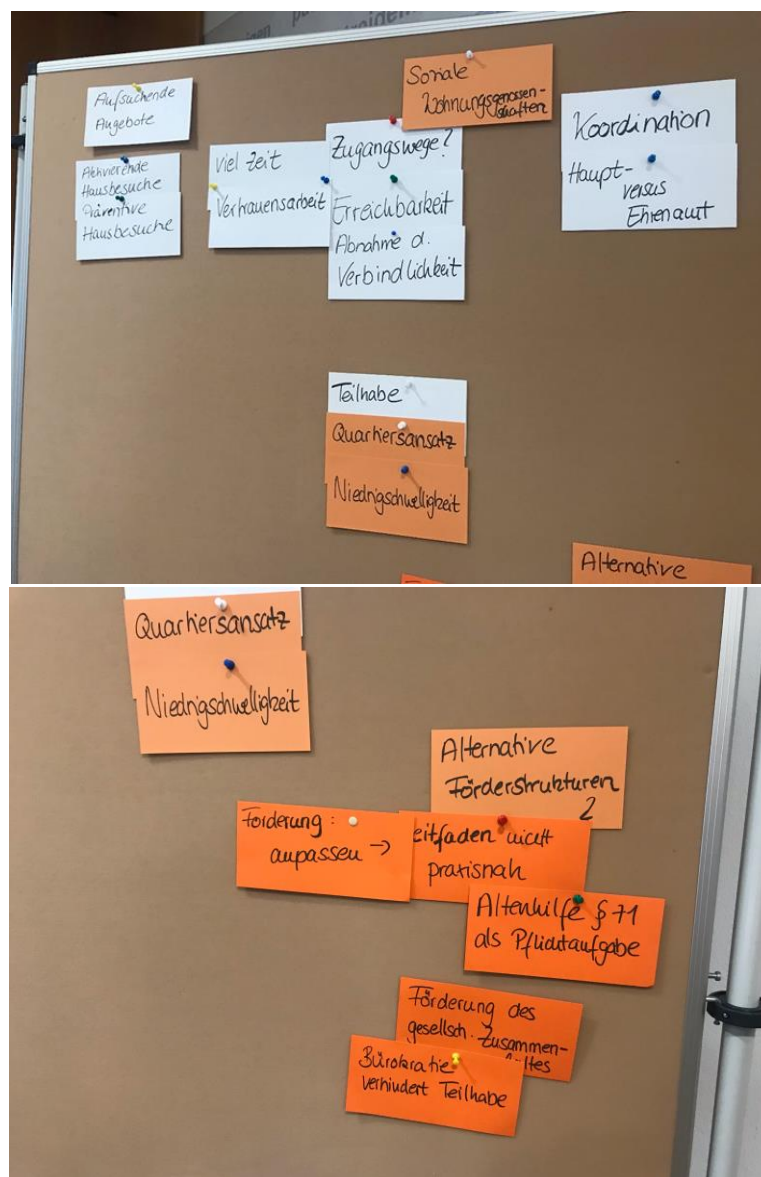 Aufsuchende
Angebote
Aktivierende
Hausbesuche
Präventive
Hausbesuche
viel Zeit
Vertrauensarbeit
Zugangswege?
Erreichbarkeit
Abnahme d.
Verbindlichkeit
Soziale
Wohnungsgenossen-
schaften
Koordination
Haupt-
versus
Ehrenamt
Teilhabe
Quartiersansatz
Niedrigschwelligkeit
Alternative
Quartiersansatz
Niedrigschwelligkeit
Alternative
Förderstrukturen
2
Forderung:
anpassen →
eitfaden nicht
praxisnah
Altenhilfe § 71
als Pflichtaufgabe
Förderung des
gesellsch. Zusammen-
altes
Bürokratie
verhindert Teilhabe